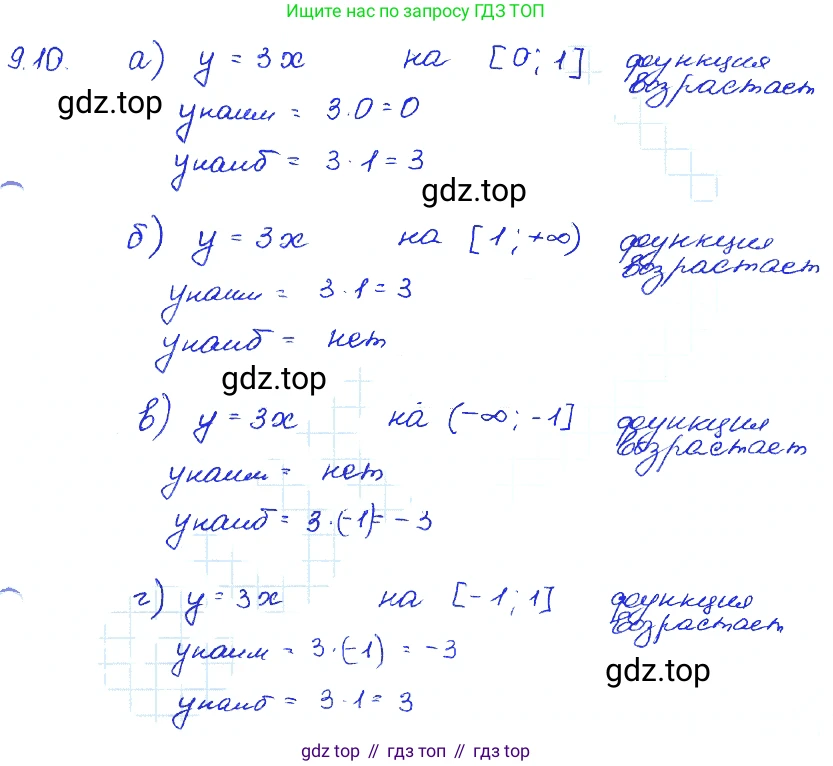 Ищите нас по запросу ГДЗ ТОП
9.10. а) y = 3x на [0; 1] функция возрастает
gdz.top
yнаим = 3·0 = 0
yнаиб = 3·1 = 3
gdz.top
б) y = 3x на [1; +∞) функция возрастает
yнаим = 3·1 = 3
yнаиб = нет
gdz.top
в) y = 3x на (-∞; -1] функция возрастает
yнаим = нет
yнаиб = 3·(-1) = -3
г) y = 3x на [-1; 1] функция возрастает
yнаим = 3·(-1) = -3
gdz.top
yнаиб = 3·1 = 3
gdz top // гдз топ // гдз top